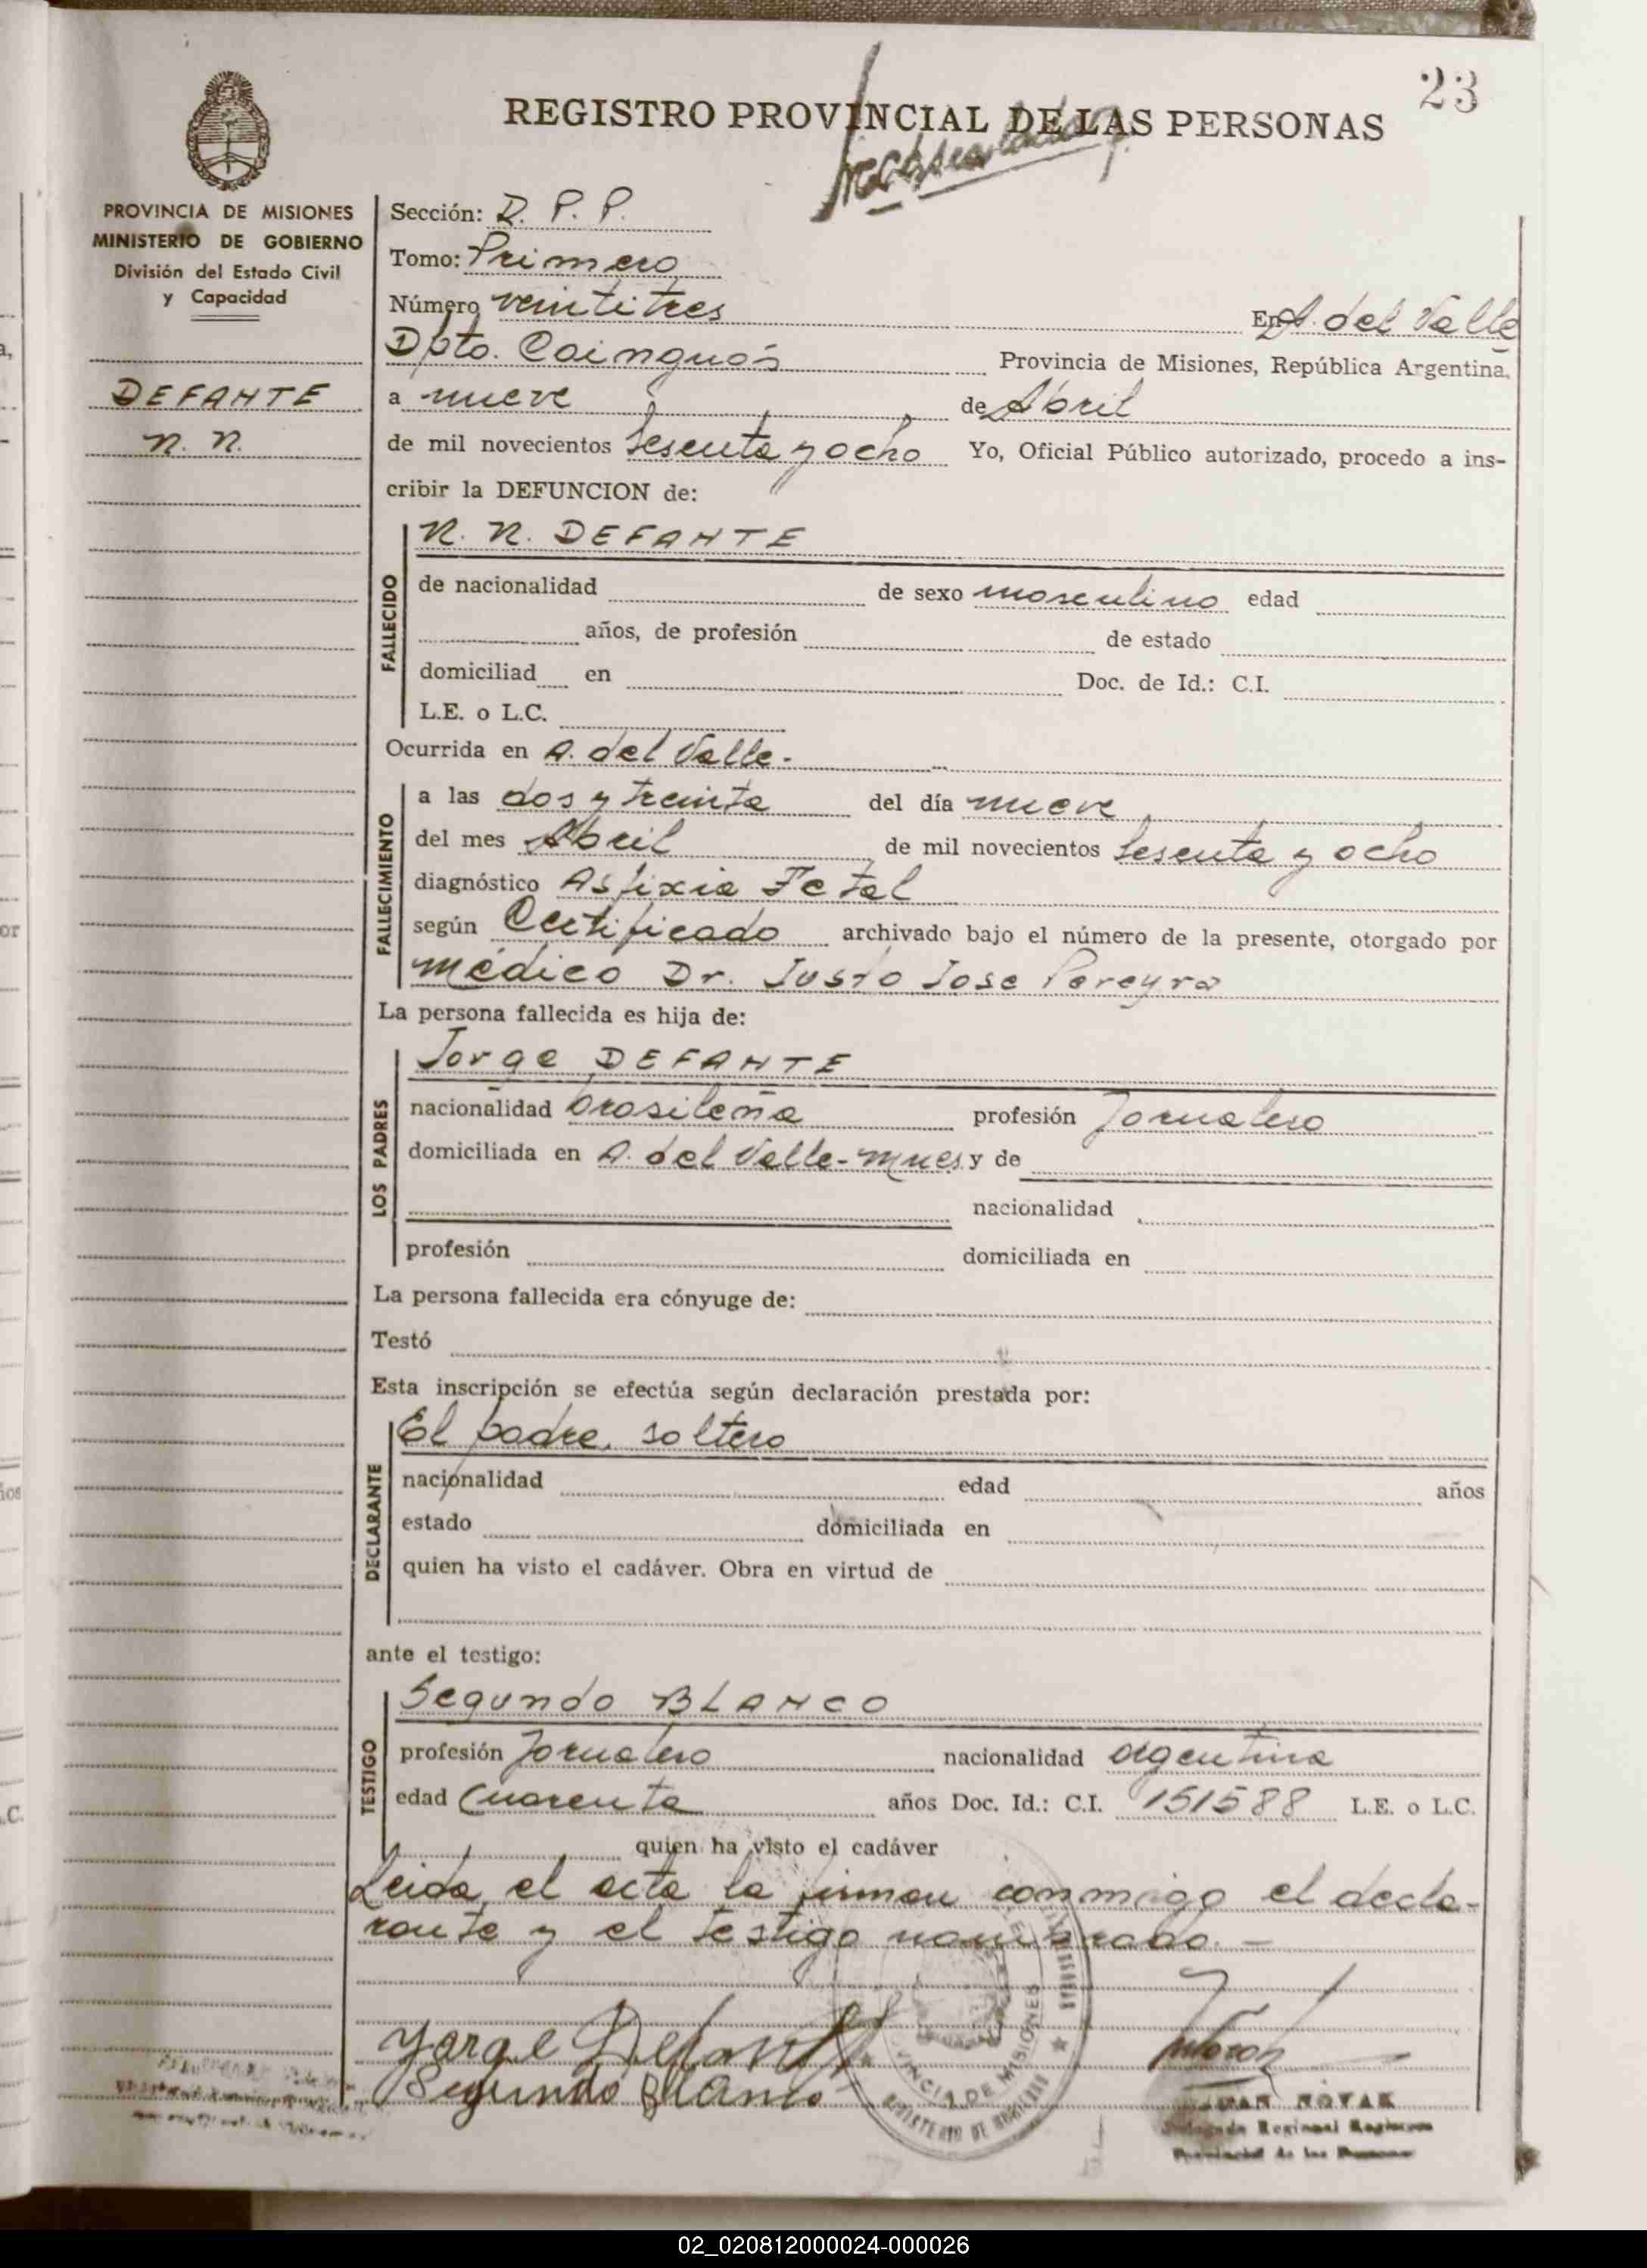 23
REGISTRO PROVINCIAL DE LAS PERSONAS
PROVINCIA DE MISIONES
MINISTERIO DE GOBIERNO
División del Estado Civil
y Capacidad
DEFANTE
N. N.
Sección: D. P. P.
Tomo: Primero
Número veintitres En A. del Valle
Dpto. Cainguás Provincia de Misiones, República Argentina.
a nueve de Abril
de mil novecientos sesenta y ocho Yo, Oficial Público autorizado, procedo a ins-
cribir la DEFUNCION de:
FALLECIDO
N. N. DEFANTE
de nacionalidad de sexo masculino edad
años, de profesión de estado
domiciliad en Doc. de Id.: C.I.
L.E. o L.C.
Ocurrida en A. del Valle.
FALLECIMIENTO
a las dos y treinta del día nueve
del mes Abril de mil novecientos sesenta y ocho
diagnóstico Asfixia Fetal
según Certificado archivado bajo el número de la presente, otorgado por
médico Dr. Justo Jose Pereyra
La persona fallecida es hija de:
LOS PADRES
Jorge DEFANTE
nacionalidad brasileña profesión Jornalero
domiciliada en A. del Valle-Mnes y de
nacionalidad
profesión domiciliada en
La persona fallecida era cónyuge de:
Testó
Esta inscripción se efectúa según declaración prestada por:
DECLARANTE
El padre, soltero
nacionalidad edad años
estado domiciliada en
quien ha visto el cadáver. Obra en virtud de
ante el testigo:
TESTIGO
Segundo BLANCO
profesión Jornalero nacionalidad argentina
edad Cuarenta años Doc. Id.: C.I. 151588 L.E. o L.C.
quien ha visto el cadáver
Leida el acta la firman conmigo el decla-
rante y el testigo nombrado. -
Jorge Defante
Segundo Blanco
PROVINCIA DE MISIONES
MINISTERIO DE GOBIERNO
NOVAK
Delegado Regional Registro
Provincial de las Personas
02_020812000024-000026